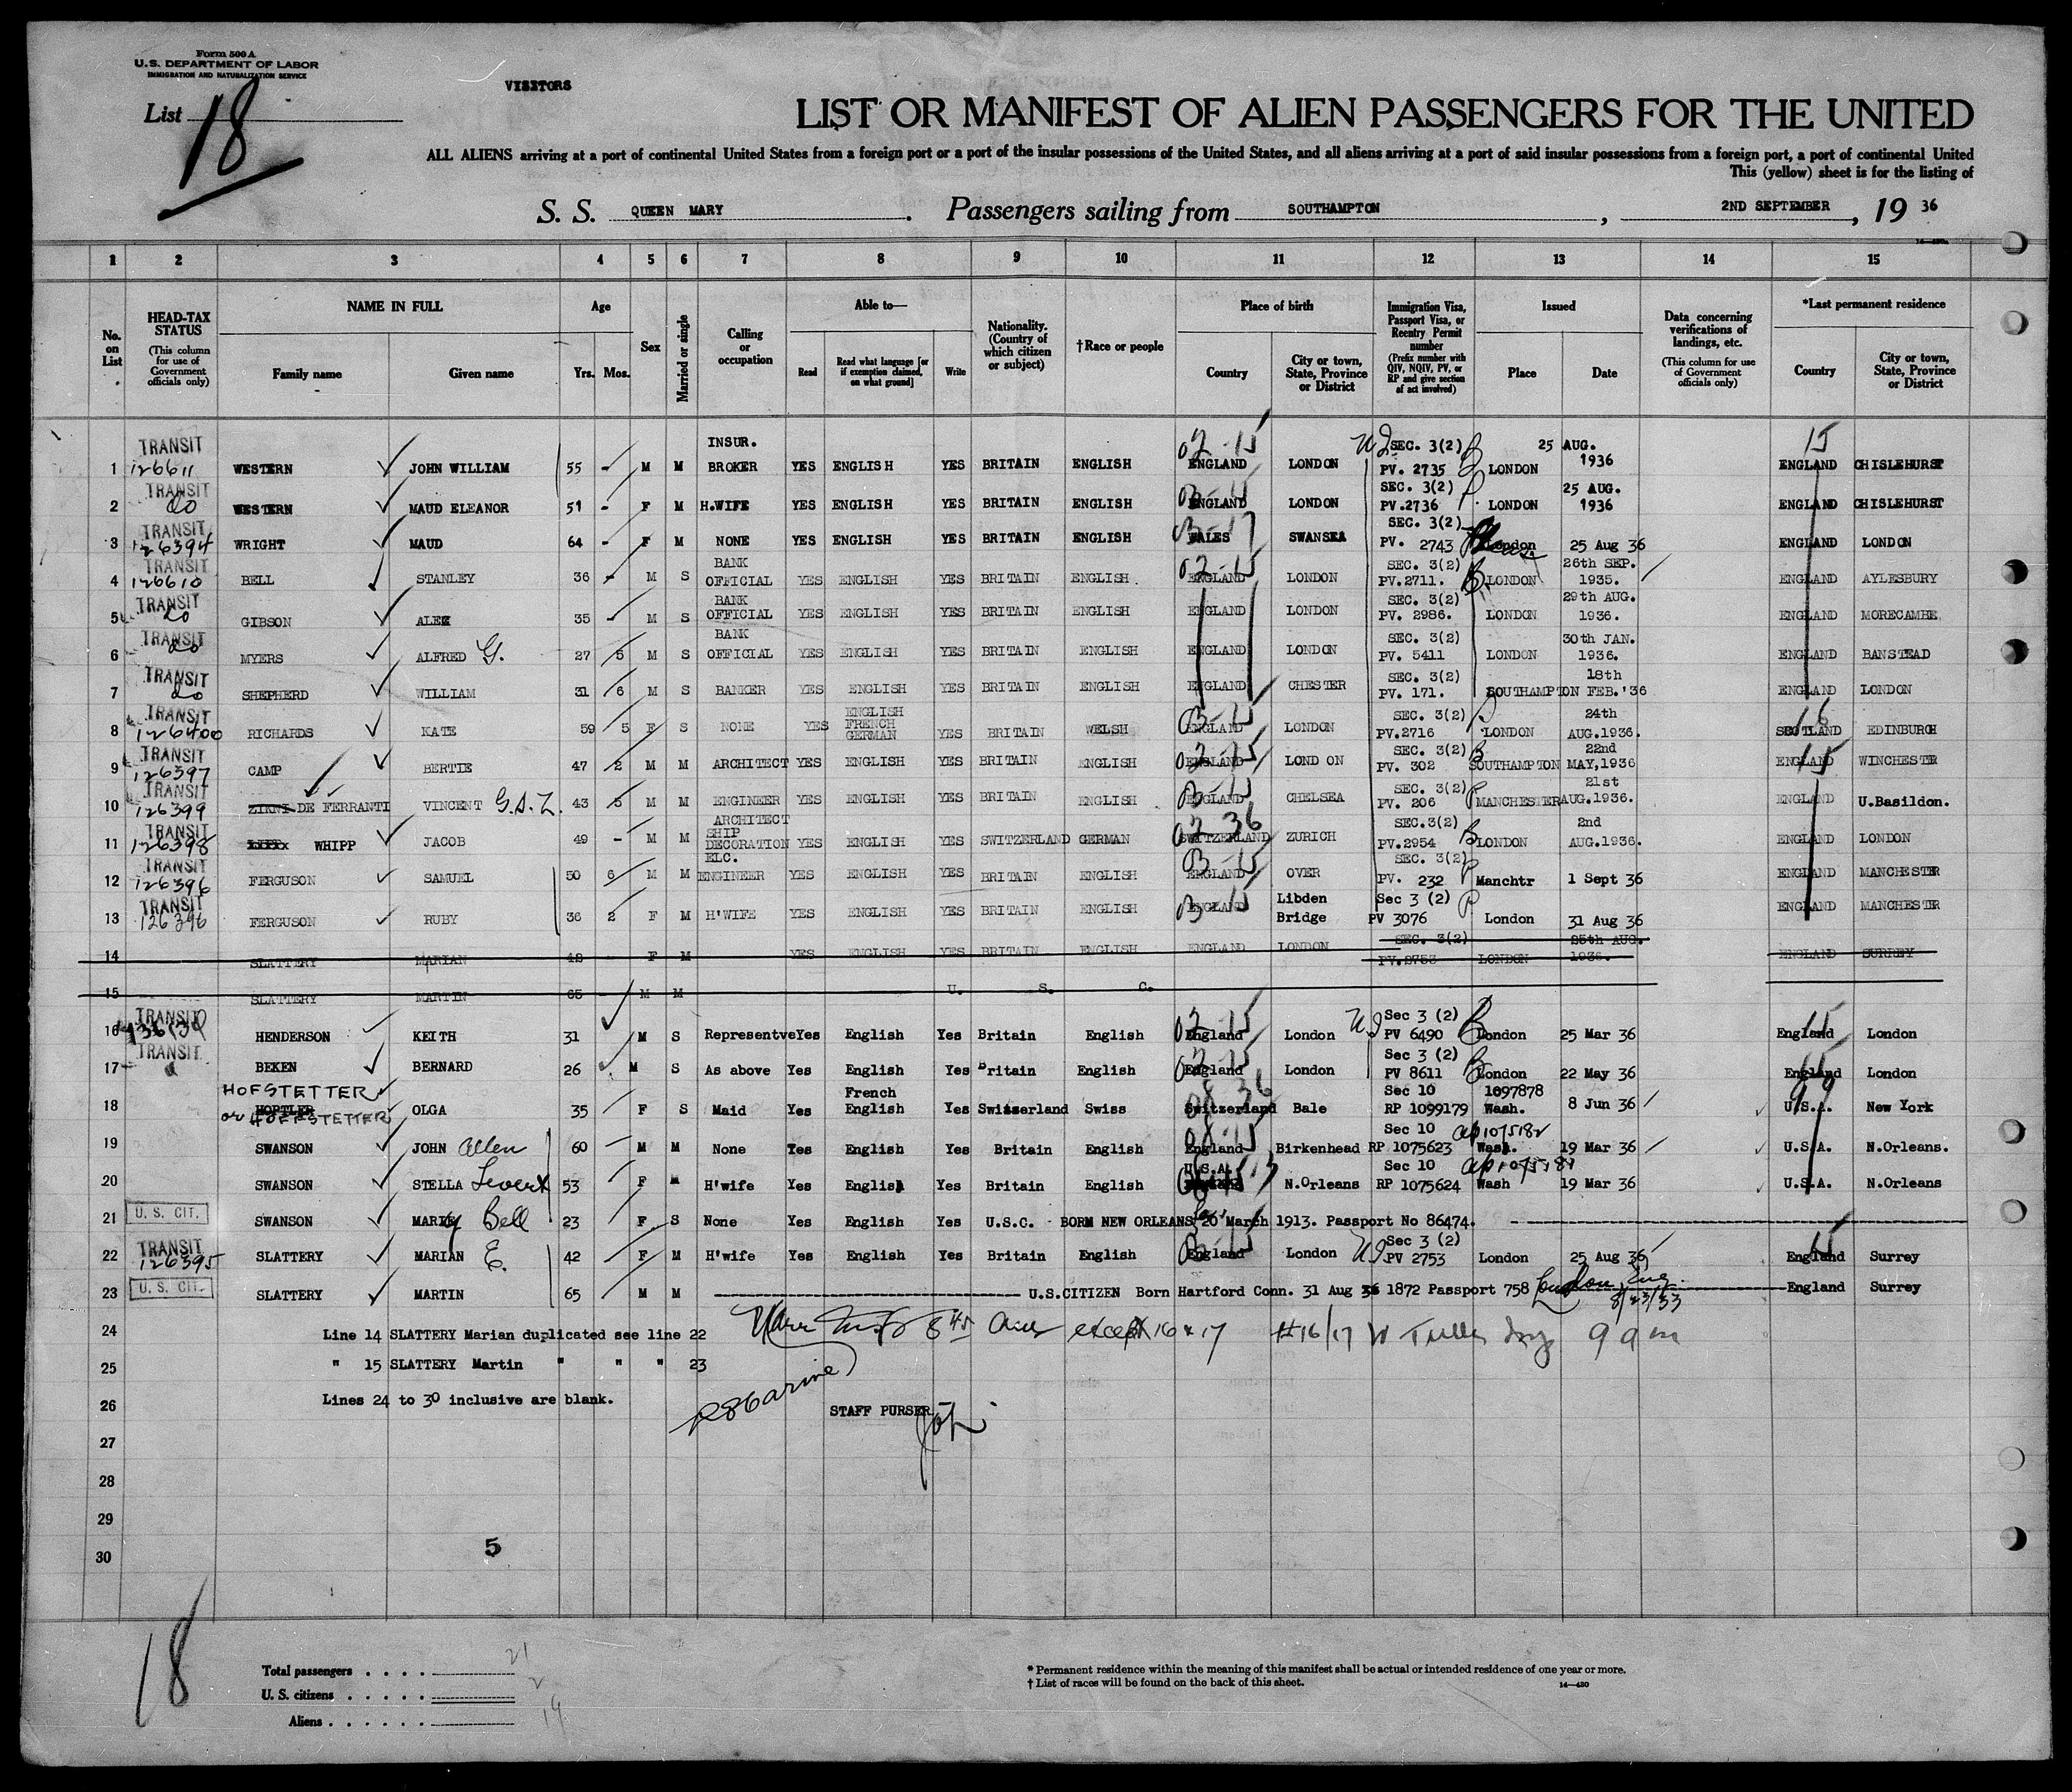 Form 500 A
U. S. DEPARTMENT OF LABOR
IMMIGRATION AND NATURALIZATION SERVICE
VISITORS
List 18
LIST OR MANIFEST OF ALIEN PASSENGERS FOR THE UNITED
ALL ALIENS arriving at a port of continental United States from a foreign port or a port of the insular possessions of the United States, and all aliens arriving at a port of said insular possessions from a foreign port, a port of continental United
This (yellow) sheet is for the listing of
S. S. QUEEN MARY. Passengers sailing from SOUTHAMPTON, 2ND SEPTEMBER, 19 36
1 2 3 4 5 6 7 8 9 10 11 12 13 14 15
No. on List
HEAD-TAX STATUS (This column for use of Government officials only)
NAME IN FULL Family name Given name
Age Yrs. Mos.
Sex
Married or single
Calling or occupation
Able to— Read Read what language [or if exemption claimed, on what ground] Write
Nationality. (Country of which citizen or subject)
†Race or people
Place of birth Country City or town, State, Province or District
Immigration Visa, Passport Visa, or Reentry Permit number (Prefix number with QIV, NQIV, PV, or RP and give section of act involved)
Issued Place Date
Data concerning verifications of landings, etc. (This column for use of Government officials only)
*Last permanent residence Country City or town, State, Province or District
1 TRANSIT 126611 WESTERN JOHN WILLIAM 55 - M M INSUR. BROKER YES ENGLISH YES BRITAIN ENGLISH 02-15 ENGLAND LONDON SEC. 3(2) PV. 2735 LONDON 25 AUG. 1936 15 ENGLAND CHISLEHURST
2 TRANSIT do WESTERN MAUD ELEANOR 51 - F M H.WIFE YES ENGLISH YES BRITAIN ENGLISH ENGLAND LONDON SEC. 3(2) PV.2736 LONDON 25 AUG. 1936 ENGLAND CHISLEHURST
3 TRANSIT 126394 WRIGHT MAUD 64 - F M NONE YES ENGLISH YES BRITAIN ENGLISH WALES SWANSEA SEC. 3(2) PV. 2743 London 25 Aug 36 ENGLAND LONDON
4 TRANSIT 126610 BELL STANLEY 36 - M S BANK OFFICIAL YES ENGLISH YES BRITAIN ENGLISH. 02-15 ENGLAND LONDON SEC. 3(2) PV.2711. LONDON 26th SEP. 1935. ENGLAND AYLESBURY
5 TRANSIT do GIBSON ALEX 35 - M S BANK OFFICIAL YES ENGLISH YES BRITAIN ENGLISH ENGLAND LONDON SEC. 3(2) PV. 2986. LONDON 29th AUG. 1936. ENGLAND MORECAMBE
6 TRANSIT do MYERS ALFRED G. 27 5 M S BANK OFFICIAL YES ENGLISH YES BRITAIN ENGLISH ENGLAND LONDON SEC. 3(2) PV. 5411 LONDON 30th JAN. 1936. ENGLAND BANSTEAD
7 TRANSIT do SHEPHERD WILLIAM 31 6 M S BANKER YES ENGLISH YES BRITAIN ENGLISH ENGLAND CHESTER SEC. 3(2) PV. 171. SOUTHAMPTON 18th FEB.'36 ENGLAND LONDON
8 TRANSIT 126400 RICHARDS KATE 59 5 F S NONE YES ENGLISH FRENCH GERMAN YES BRITAIN WELSH ENGLAND LONDON SEC. 3(2) PV.2716 LONDON 24th AUG.1936. 16 SCOTLAND EDINBURGH
9 TRANSIT 126397 CAMP BERTIE 47 2 M M ARCHITECT YES ENGLISH YES BRITAIN ENGLISH 02-15 ENGLAND LONDON SEC. 3(2) PV. 302 SOUTHAMPTON 22nd MAY,1936 15 ENGLAND WINCHESTR
10 TRANSIT 126399 DE FERRANTI VINCENT G.D.Z. 43 5 M M ENGINEER YES ENGLISH YES BRITAIN ENGLISH ENGLAND CHELSEA SEC. 3(2) PV. 206 MANCHESTER 21st AUG.1936. ENGLAND U.Basildon.
11 TRANSIT 126398 WHIPP JACOB 49 - M M ARCHITECT SHIP DECORATION YES ENGLISH YES SWITZERLAND GERMAN 02 36 SWITZERLAND ZURICH SEC.3(2) PV.2954 LONDON 2nd AUG.1936. ENGLAND LONDON
12 TRANSIT 126396 FERGUSON SAMUEL 50 6 M M ELC. ENGINEER YES ENGLISH YES BRITAIN ENGLISH ENGLAND OVER SEC. 3(2) PV. 232 Manchtr 1 Sept 36 ENGLAND MANCHESTR
13 TRANSIT 126396 FERGUSON RUBY 36 2 F M H'WIFE YES ENGLISH YES BRITAIN ENGLISH ENGLAND Libden Bridge Sec 3 (2) PV 3076 London 31 Aug 36 ENGLAND MANCHESTR
14 SLATTERY MARIAN 42 F M YES ENGLISH YES BRITAIN ENGLISH ENGLAND LONDON SEC. 3(2) PV.2753 LONDON 25th AUG. 1936. ENGLAND SURREY
15 SLATTERY MARTIN 65 - M M U. S. C.
16 TRANSIT HENDERSON KEITH 31 M S Representve Yes English Yes Britain English 02-15 England London Sec 3 (2) PV 6490 London 25 Mar 36 15 England London
17 TRANSIT BEKEN BERNARD 26 M S As above Yes English Yes Britain English 02-15 England London Sec 3 (2) PV 8611 London 22 May 36 England London
18 HOFSTETTER or HOFFSTETTER HOPTLER OLGA 35 F S Maid Yes French English Yes Switserland Swiss 36 Switzerland Bale Sec 10 RP 1099179 1097878 Wash. 8 Jun 36 99 U.S.A. New York
19 SWANSON JOHN Allen 60 M M None Yes English Yes Britain English England Birkenhead Sec 10 RP 1075623 ap 1075182 Wash. 19 Mar 36 U.S.A. N.Orleans.
20 SWANSON STELLA 53 F M H'wife Yes English Yes Britain English U.S.A. N.Orleans Sec 10 RP 1075624 Wash 19 Mar 36 U.S.A. N.Orleans
21 U. S. CIT. SWANSON MARY Bell 23 F S None Yes English Yes U.S.C. - BORN NEW ORLEANS 20 March 1913. Passport No 86474.
22 TRANSIT 126395 SLATTERY MARIAN E. 42 F M H'wife Yes English Yes Britain English England London Sec 3 (2) PV 2753 London 25 Aug 36 15 England Surrey
23 U. S. CIT. SLATTERY MARTIN 65 M M U.S.CITIZEN Born Hartford Conn. 31 Aug 1872 Passport 758 London, Eng. 8/23/33 England Surrey
24 Line 14 SLATTERY Marian duplicated see line 22 8 45 except 16 & 17 #16/17 9 am
25 " 15 SLATTERY Martin " " " 23
26 Lines 24 to 30 inclusive are blank. STAFF PURSER
27
28
29
30
5
18
Total passengers . . . . 21
U. S. citizens . . . . . 2
Aliens . . . . . . 19
* Permanent residence within the meaning of this manifest shall be actual or intended residence of one year or more.
† List of races will be found on the back of this sheet.
14—430